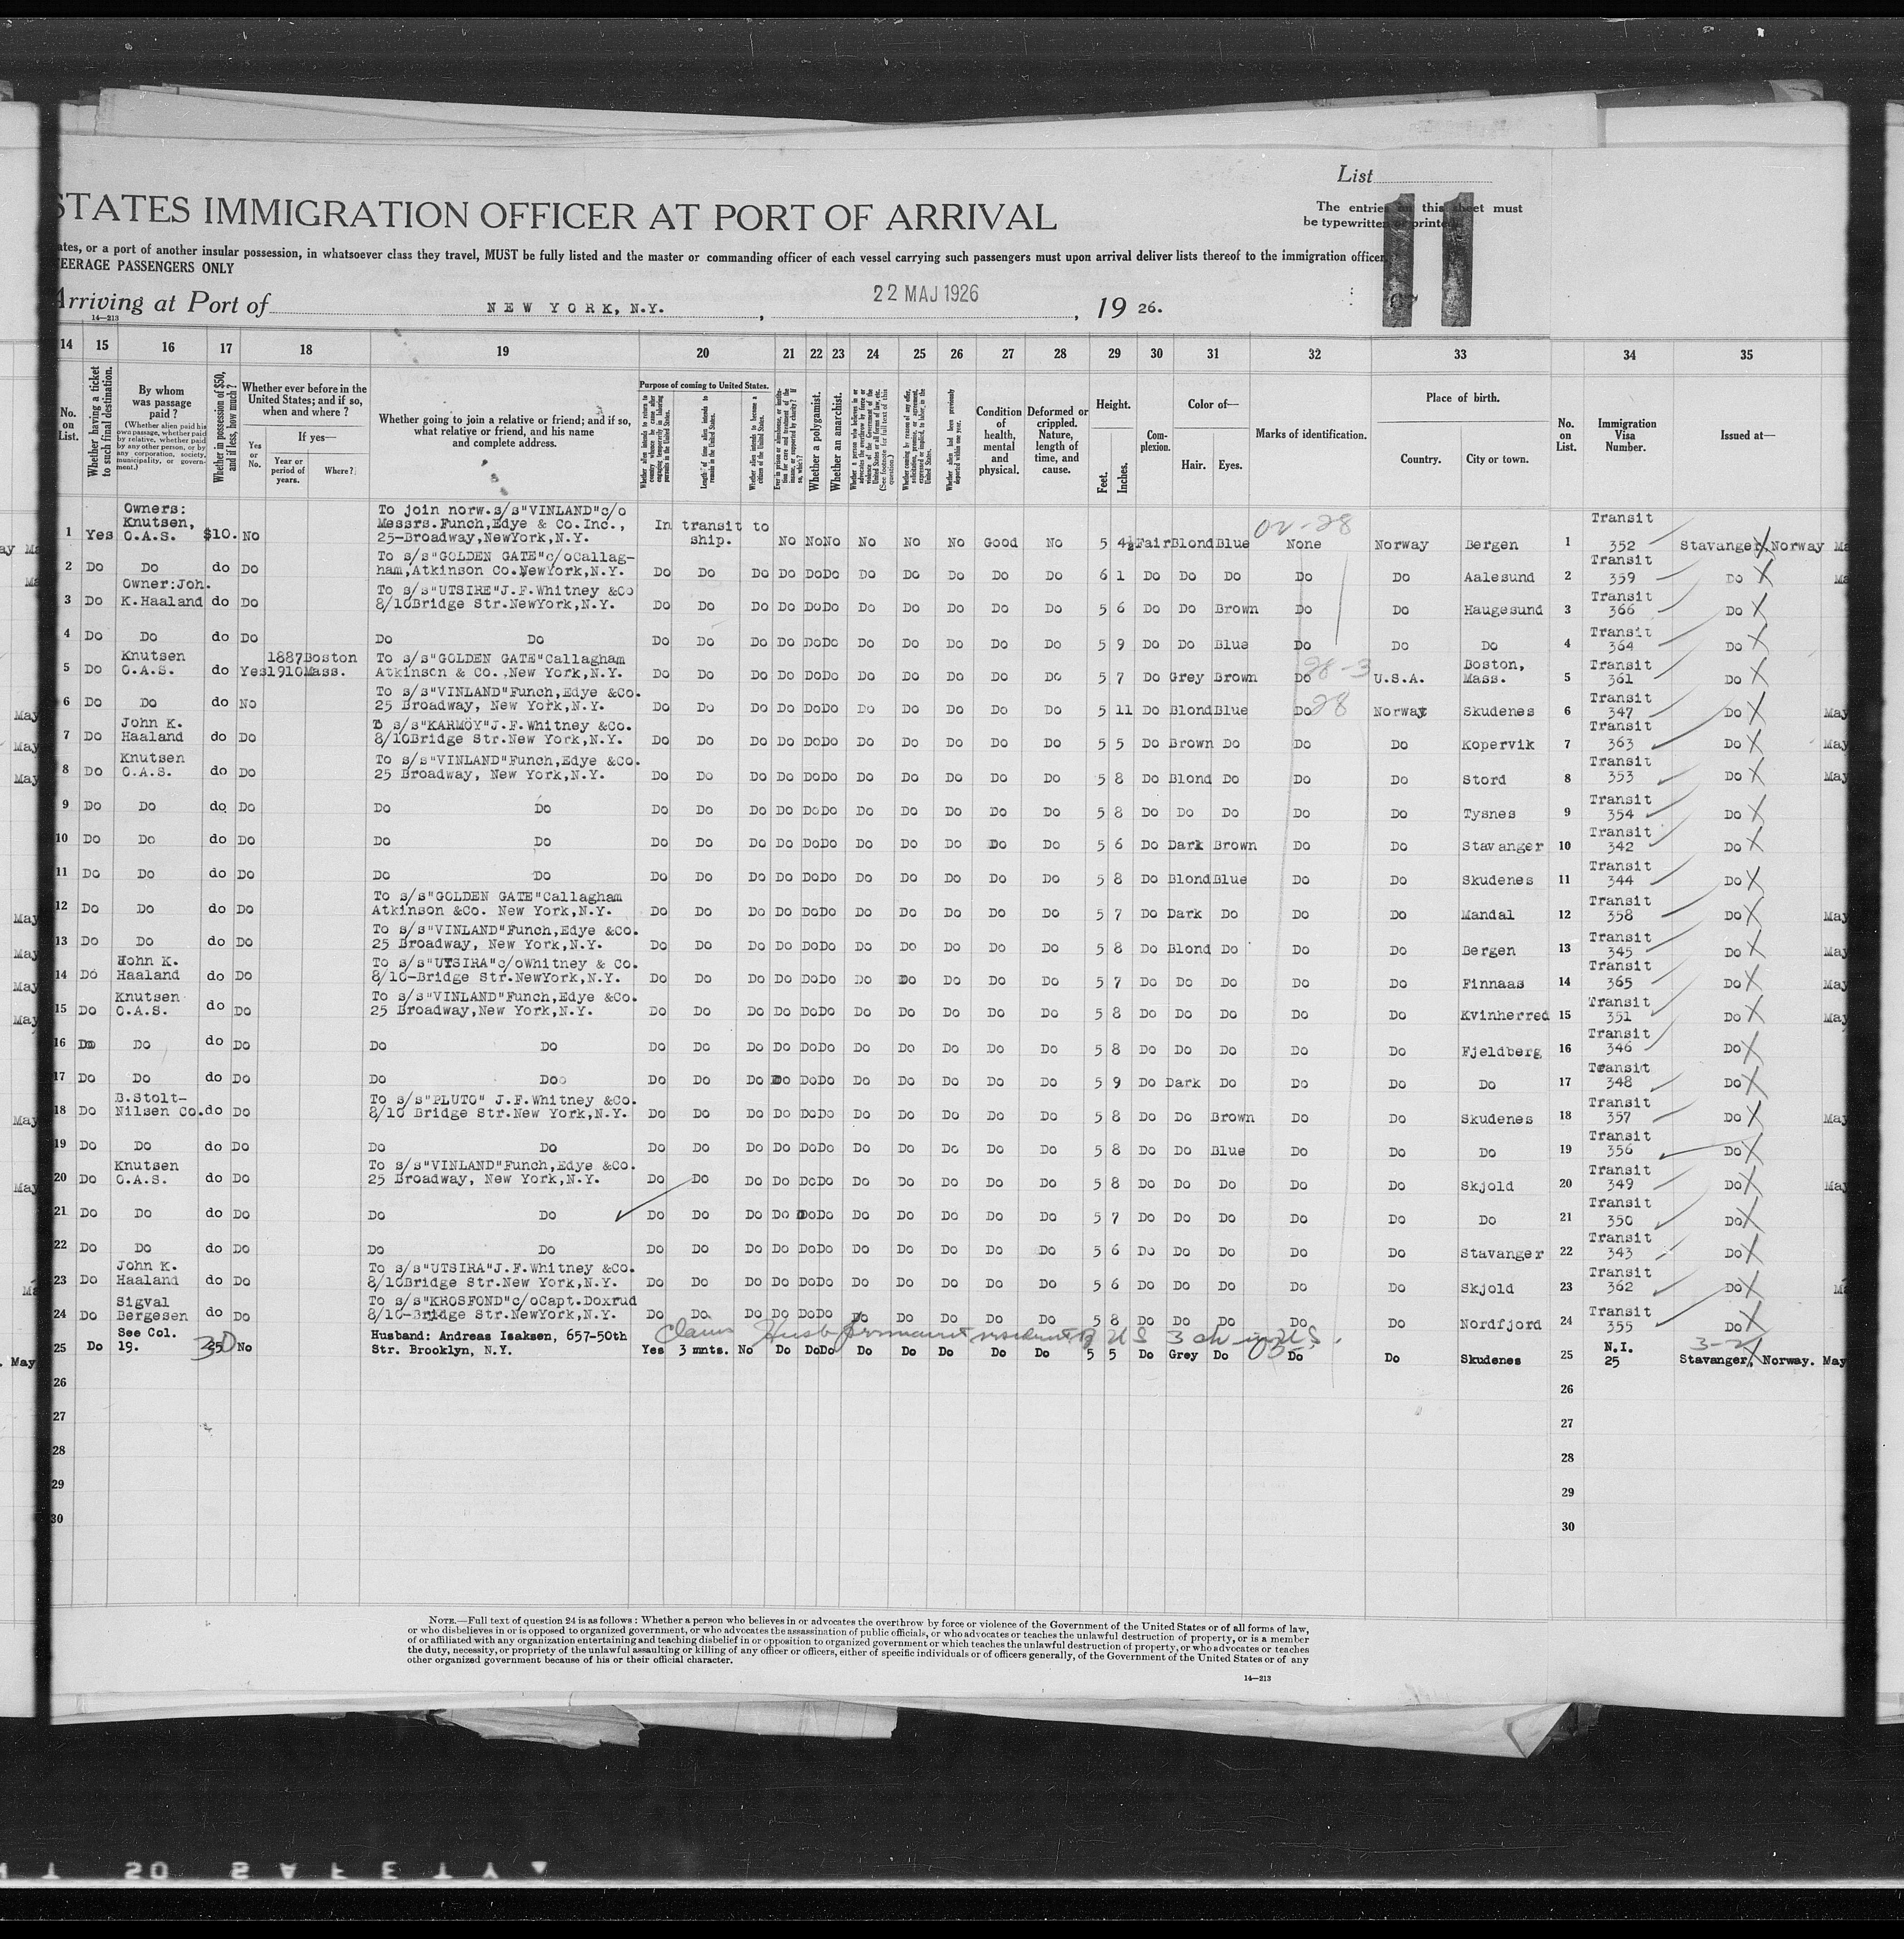 List
STATES IMMIGRATION OFFICER AT PORT OF ARRIVAL
The entries on this sheet must
be typewritten or printed.
11
ates, or a port of another insular possession, in whatsoever class they travel, MUST be fully listed and the master or commanding officer of each vessel carrying such passengers must upon arrival deliver lists thereof to the immigration officer
EERAGE PASSENGERS ONLY
Arriving at Port of NEW YORK, N.Y. , 22 MAJ 1926 , 19 26.
14—213
14 15 16 17 18 19 20 21 22 23 24 25 26 27 28 29 30 31 32 33 34 35
No. on List.
Whether having a ticket to such final destination.
By whom was passage paid?
(Whether alien paid his own passage, whether paid by relative, whether paid by any other person, or by any corporation, society, municipality, or government.)
Whether in possession of $50, and if less, how much?
Whether ever before in the United States; and if so, when and where?
If yes—
Yes or No.
Year or period of years.
Where?
Whether going to join a relative or friend; and if so, what relative or friend, and his name and complete address.
Purpose of coming to United States.
Length of time alien intends to remain in the United States.
Whether alien intends to become a citizen of the United States.
Whether a polygamist.
Whether an anarchist.
Condition of health, mental and physical.
Deformed or crippled. Nature, length of time, and cause.
Height.
Feet. Inches.
Complexion.
Color of—
Hair. Eyes.
Marks of identification.
Place of birth.
Country. City or town.
No. on List.
Immigration Visa Number.
Issued at—
Owners: To join norw.s/s"VINLAND"c/o Transit
Knutsen, Messrs.Funch,Edye & Co.Inc., In transit to 02-28
1 Yes O.A.S. $10. No 25-Broadway,NewYork,N.Y. ship. No No No No No No Good No 5 4½ Fair Blond Blue None Norway Bergen 1 352 Stavanger, Norway
To s/s"GOLDEN GATE"c/oCallag- Transit
2 Do Do do Do ham,Atkinson Co.NewYork,N.Y. Do Do Do Do Do Do Do Do Do Do Do 6 1 Do Do Do Do Do Aalesund 2 359 Do
Owner:Joh. To s/s"UTSIRE"J.F.Whitney &Co Transit
3 Do K.Haaland do Do 8/10Bridge Str.NewYork,N.Y. Do Do Do Do Do Do Do Do Do Do Do 5 6 Do Do Brown Do Do Haugesund 3 366 Do
Transit
4 Do Do do Do Do Do Do Do Do Do Do Do Do Do Do Do Do 5 9 Do Do Blue Do Do Do 4 364 Do
Knutsen 1887 Boston To s/s"GOLDEN GATE"Callagham 28-3 Boston, Transit
5 Do O.A.S. do Yes 1910 Mass. Atkinson & Co.,New York,N.Y. Do Do Do Do Do Do Do Do Do Do Do 5 7 Do Grey Brown Do U.S.A. Mass. 5 361 Do
To s/s"VINLAND"Funch,Edye &Co. 28 Transit
6 Do Do do No 25 Broadway, New York,N.Y. Do Do Do Do Do Do Do Do Do Do Do 5 11 Do Blond Blue Do Norway Skudenes 6 347 Do May
John K. To s/s"KARMÖY"J.F.Whitney &Co. Transit
7 Do Haaland do Do 8/10Bridge Str.New York,N.Y. Do Do Do Do Do Do Do Do Do Do Do 5 5 Do Brown Do Do Do Kopervik 7 363 Do May
Knutsen To s/s"VINLAND"Funch,Edye &Co. Transit
8 Do O.A.S. do Do 25 Broadway, New York,N.Y. Do Do Do Do Do Do Do Do Do Do Do 5 8 Do Blond Do Do Do Stord 8 353 Do May
Transit
9 Do Do do Do Do Do Do Do Do Do Do Do Do Do Do Do Do 5 8 Do Do Do Do Do Tysnes 9 354 Do
Transit
10 Do Do do Do Do Do Do Do Do Do Do Do Do Do Do Do Do 5 6 Do Dark Brown Do Do Stavanger 10 342 Do
Transit
11 Do Do do Do Do Do Do Do Do Do Do Do Do Do Do Do Do 5 8 Do Blond Blue Do Do Skudenes 11 344 Do
To s/s"GOLDEN GATE"Callagham Transit
12 Do Do do Do Atkinson &Co. New York,N.Y. Do Do Do Do Do Do Do Do Do Do Do 5 7 Do Dark Do Do Do Mandal 12 358 Do May
To s/s"VINLAND"Funch,Edye &Co. Transit
13 Do Do do Do 25 Broadway, New York,N.Y. Do Do Do Do Do Do Do Do Do Do Do 5 8 Do Blond Do Do Do Bergen 13 345 Do May
John K. To s/s"UTSIRA"c/oWhitney & Co. Transit
14 Do Haaland do Do 8/10-Bridge Str.NewYork,N.Y. Do Do Do Do Do Do Do Do Do Do Do 5 7 Do Do Do Do Do Finnaas 14 365 Do May
Knutsen To s/s"VINLAND"Funch,Edye &Co. Transit
15 Do O.A.S. do Do 25 Broadway,New York,N.Y. Do Do Do Do Do Do Do Do Do Do Do 5 8 Do Do Do Do Do Kvinherred 15 351 Do May
Transit
16 Do Do do Do Do Do Do Do Do Do Do Do Do Do Do Do Do 5 8 Do Do Do Do Do Fjeldberg 16 346 Do
Transit
17 Do Do do Do Do Do Do Do Do Do Do Do Do Do Do Do Do 5 9 Do Dark Do Do Do Do 17 348 Do
B.Stolt- To s/s"PLUTO" J.F.Whitney &Co. Transit
18 Do Nilsen Co. do Do 8/10 Bridge Str.New York,N.Y. Do Do Do Do Do Do Do Do Do Do Do 5 8 Do Do Brown Do Do Skudenes 18 357 Do May
Transit
19 Do Do do Do Do Do Do Do Do Do Do Do Do Do Do Do Do 5 8 Do Do Blue Do Do Do 19 356 Do
Knutsen To s/s"VINLAND"Funch,Edye &Co. Transit
20 Do O.A.S. do Do 25 Broadway, New York,N.Y. Do Do Do Do Do Do Do Do Do Do Do 5 8 Do Do Do Do Do Skjold 20 349 Do May
Transit
21 Do Do do Do Do Do Do Do Do Do Do Do Do Do Do Do Do 5 7 Do Do Do Do Do Do 21 350 Do
Transit
22 Do Do do Do Do Do Do Do Do Do Do Do Do Do Do Do Do 5 6 Do Do Do Do Do Stavanger 22 343 Do
John K. To s/s"UTSIRA"J.F.Whitney &Co. Transit
23 Do Haaland do Do 8/10Bridge Str.New York,N.Y. Do Do Do Do Do Do Do Do Do Do Do 5 6 Do Do Do Do Do Skjold 23 362 Do
Sigval To s/s"KROSFOND"c/oCapt.Doxrud Transit
24 Do Bergesen do Do 8/10-Bridge Str.NewYork,N.Y. Do Do Do Do Do Do Do Do Do Do Do 5 8 Do Do Do Do Do Nordfjord 24 355 Do
Claims Husb permanent resident of US 3 ch in US.
See Col. Husband: Andreas Isaksen, 657-50th N.I. 3-2
25 Do 19. 30 No Str. Brooklyn, N.Y. Yes 3 mnts. No Do Do Do Do Do Do Do Do 5 5 Do Grey Do Do Do Skudenes 25 25 Stavanger, Norway. May
26 26
27 27
28 28
29 29
30 30
NOTE.—Full text of question 24 is as follows: Whether a person who believes in or advocates the overthrow by force or violence of the Government of the United States or of all forms of law,
or who disbelieves in or is opposed to organized government, or who advocates the assassination of public officials, or who advocates or teaches the unlawful destruction of property, or is a member
of or affiliated with any organization entertaining and teaching disbelief in or opposition to organized government or which teaches the unlawful destruction of property, or who advocates or teaches
the duty, necessity, or propriety of the unlawful assaulting or killing of any officer or officers, either of specific individuals or of officers generally, of the Government of the United States or of any
other organized government because of his or their official character.
14—213
SAFETY